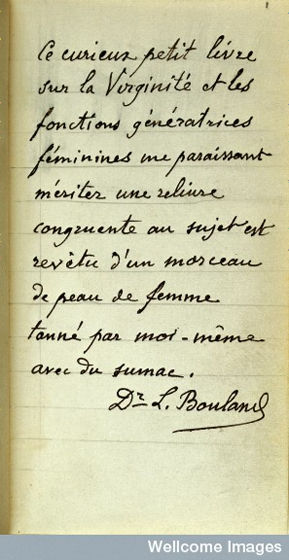 Ce curieux petit livre
sur la Virginité et les
fonctions génératrices
féminines me paraissant
mériter une reliure
congruente au sujet est
revêtu d'un morceau
de peau de femme
tanné par moi-même
avec du sumac.
Dr L. Bouland
Wellcome Images